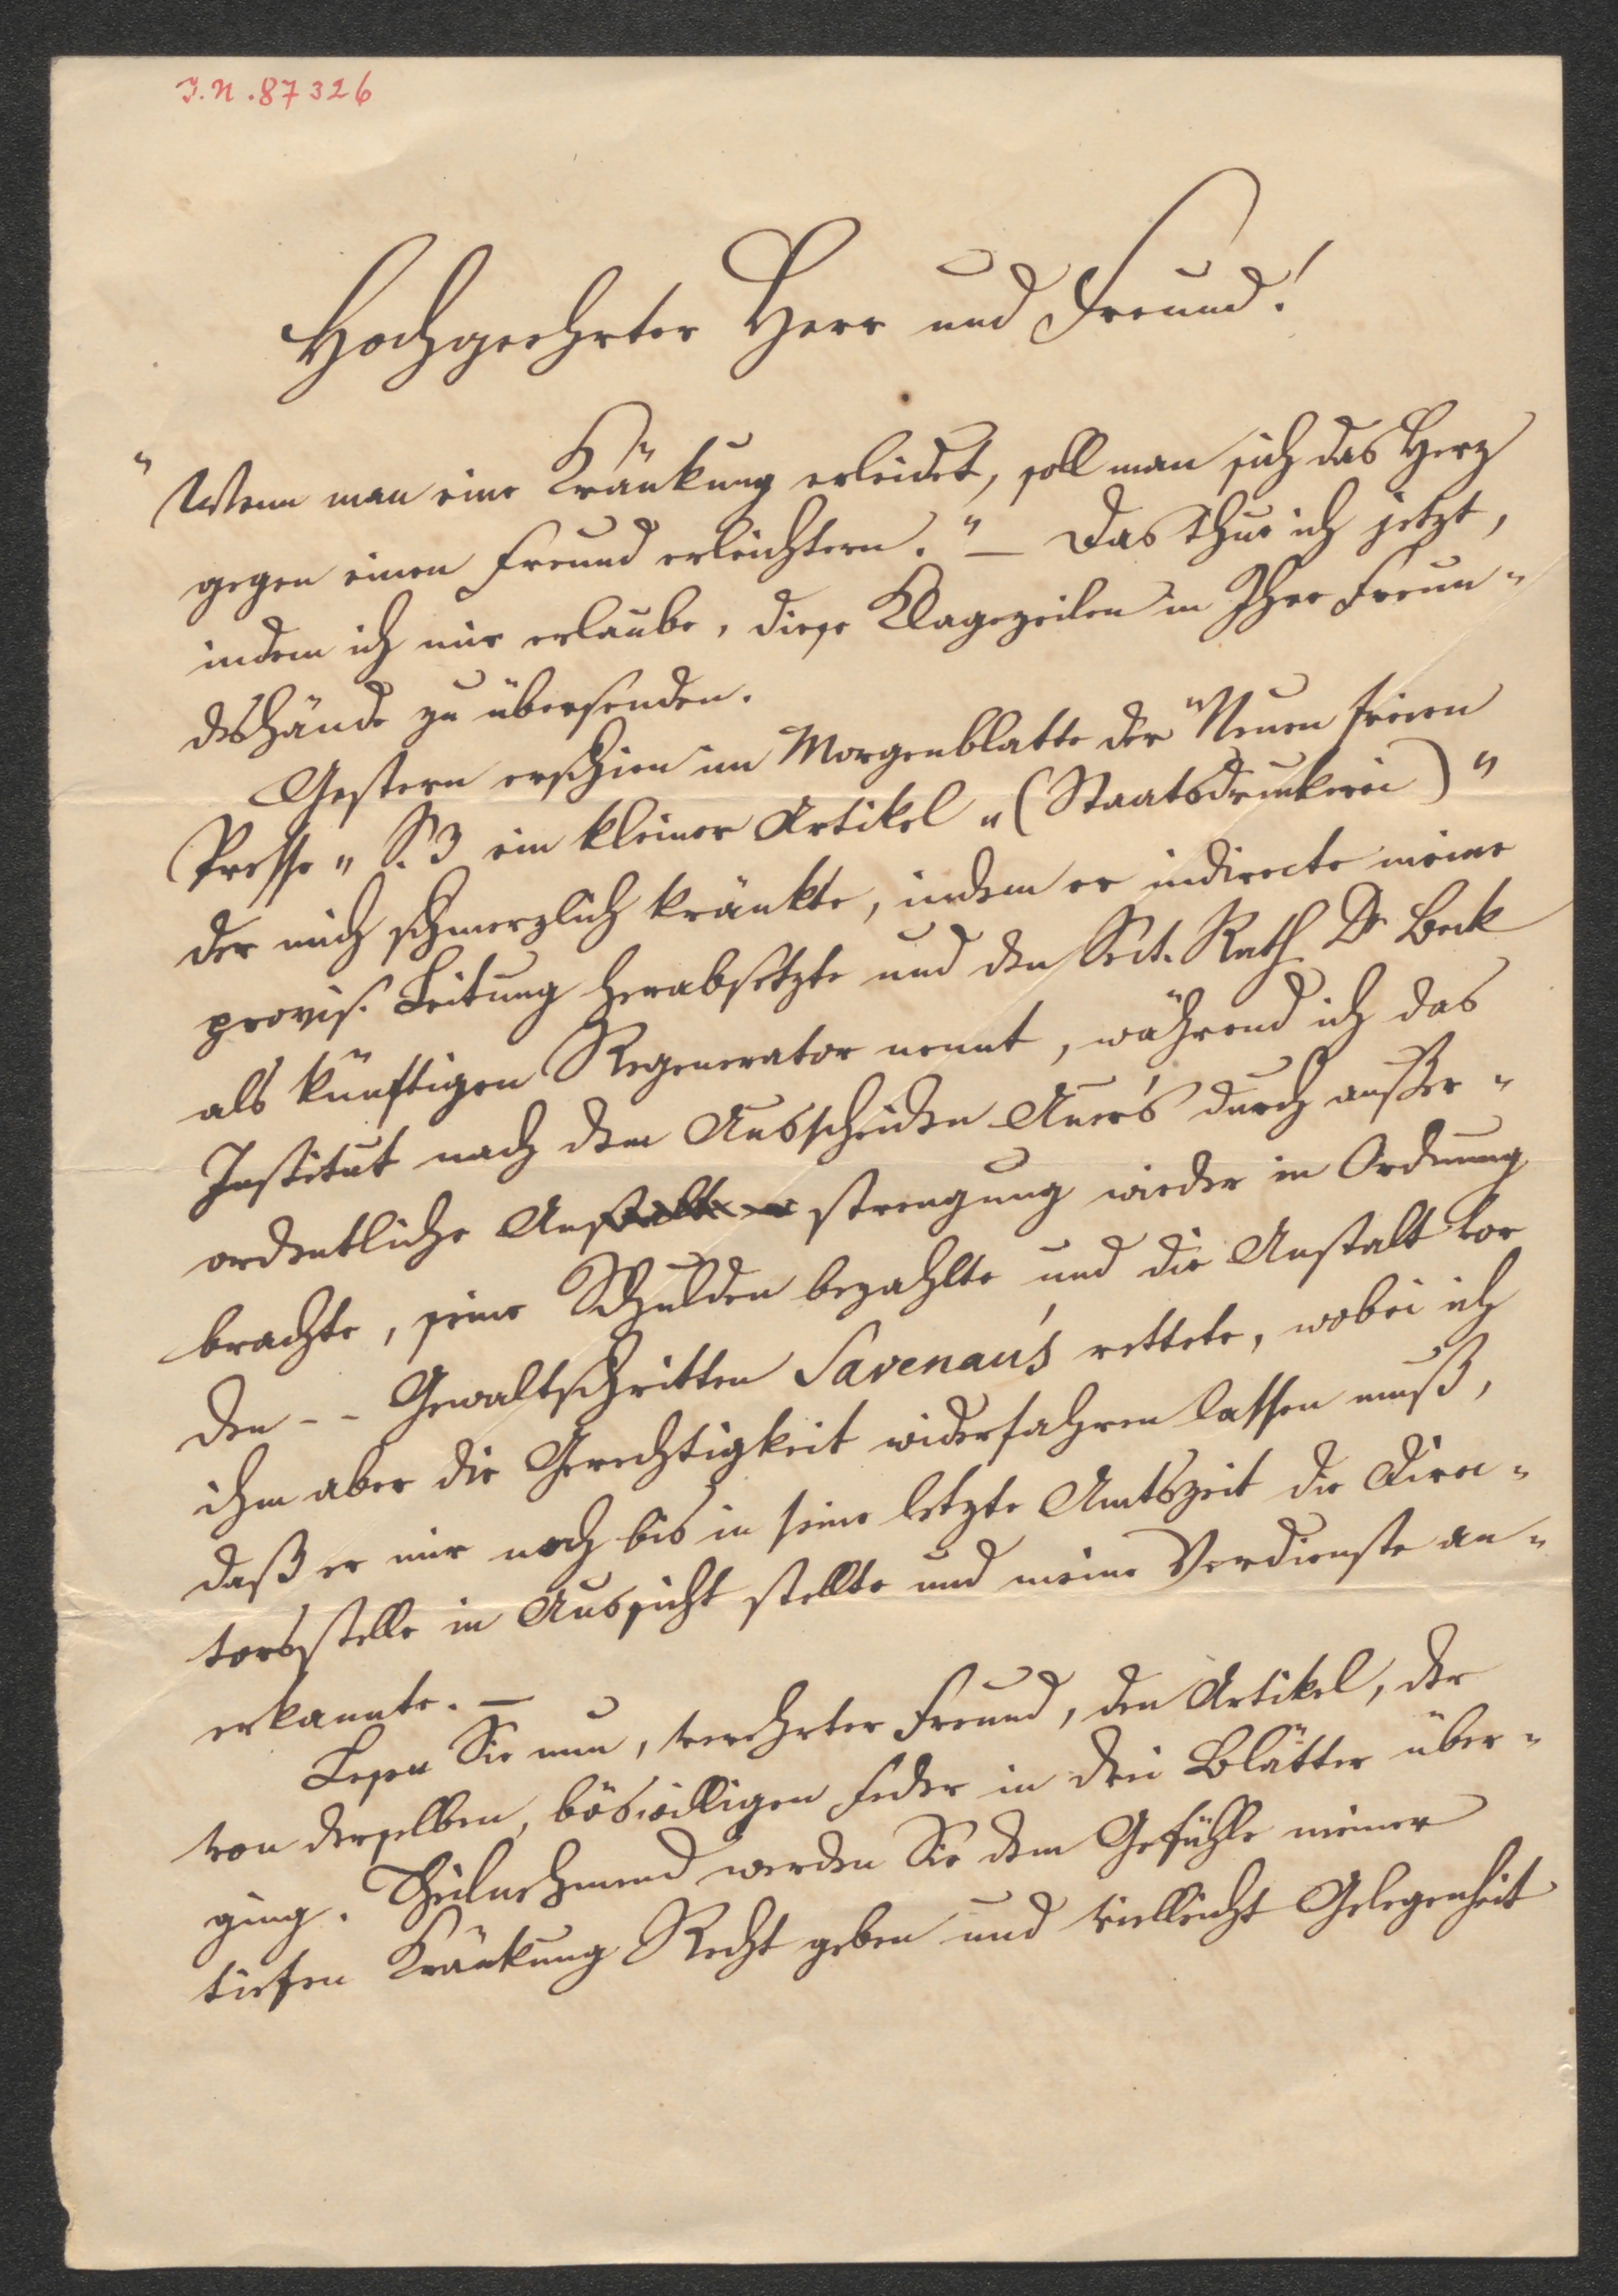 I.N. 87326
Hochgeehrter Herr und Freund!
"Wenn man eine Kränkung erleidet, soll man sich das Herz
gegen einen Freund erleichtern." – Das thue ich jetzt,
indem ich mir erlaube, diese Klagezeilen in Ihre Freun-
deshände zu übersenden.
Gestern erschien im Morgenblatte der "Neuen freien
Presse" S. 3 ein kleiner Artikel "(Staatsdruckerei)"
der mich schmerzlich kränkte, indem er indirecte meine
provis. Leitung herabsetzte und den Sect. Rath Dr Beck
als künftigen Regenerator nennt, während ich das
Institut nach dem Ausscheiden Auer's durch außer-
ordentliche Anstrengung wieder in Ordnung
brachte, seine Schulden bezahlte und die Anstalt vor
den -- Gewaltschritten Savenau's rettete, wobei ich
ihm aber die Gerechtigkeit widerfahren lassen muß,
daß er mir noch bis in seine letzte Amtszeit die Direc-
torsstelle in Aussicht stellte und meine Verdienste an-
erkannte. –
Lesen Sie nun, verehrter Freund, den Artikel, der
von derselben, böswilligen Feder in drei Blätter über-
ging. Theilnehmend werden Sie dem Gefühle meiner
tiefen Kränkung Recht geben und vielleicht Gelegenheit